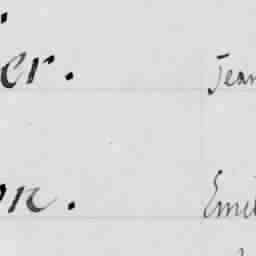 er. Jean
on. Emil